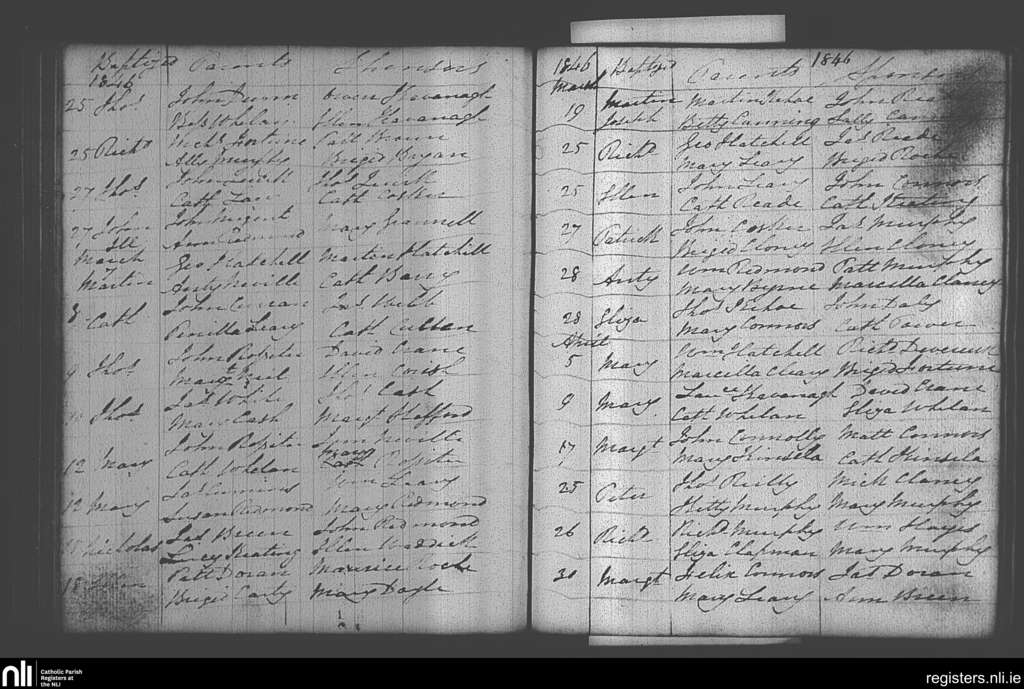 Baptized Parents Sponsors
1846
25 Thos John Dunn Owen Kavanagh
Bets Whelan Ellen Kavanagh
25 Richd Mchl Fortune Patt Brown
Alls Murphy Briged Bryan
27 Thos John Quirk Thos Quirk
Cath Law Cath Cosker
27 John John Nugent Mary Grannell
Ann Redmond
March
Martin Geo Hatchell Martin Hatchell
Anty Neville Cath Barry
8 Cath John Curran Jas Webb
Penella Leary Cath Cullen
9 Thos John Rossiter David Crane
Margt Ellen
Thos Jas White Thos Cash
Mary Cash Margt Stafford
12 Mary John Rossiter John Neville
Cath Whelan Mary Rossiter
12 Mary Jas Wm Leary
Susan Redmond Mary Redmond
Nicholas Jas Breen John Redmond
Lucy Keating Ellen
18 Ellen Patt Doran Maurice Roche
Briged Carty Mary Doyle
1846 Baptized Parents 1846 Sponsors
March
19 Martin Martin Kehoe John
Joseph Betty Cunning Sally
25 Richd Geo Hatchell Jas Reade
Mary Leary Briged Roche
25 Ellen John Leary John Connors
Cath Reade Cath Keating
27 Patrick John Cosker Jas Murphy
Briged Cloney Ellen Cloney
28 Anty Wm Redmond Patt Murphy
Mary Byrne Marcella Clancy
28 Eliza Thos Kehoe John Daly
Mary Connors Cath Power
April
5 Mary Wm Hatchell Richd Devereux
Marcella Cleary Briged Fortune
9 Mary Laure Kavanagh David Crane
Cath Whelan Eliza Whelan
17 Margt John Connolly Matt Connors
Mary Kinsela Cath Kinsela
25 Peter Thos Reilly Mich Clancy
Hetty Murphy Mary Murphy
26 Richd Richd Murphy Wm Hayes
Eliza Chapman Mary Murphy
30 Margt Felix Connors Jas Doran
Mary Leary Ann Breen
nli Catholic Parish
Registers at
the NLI
registers.nli.ie